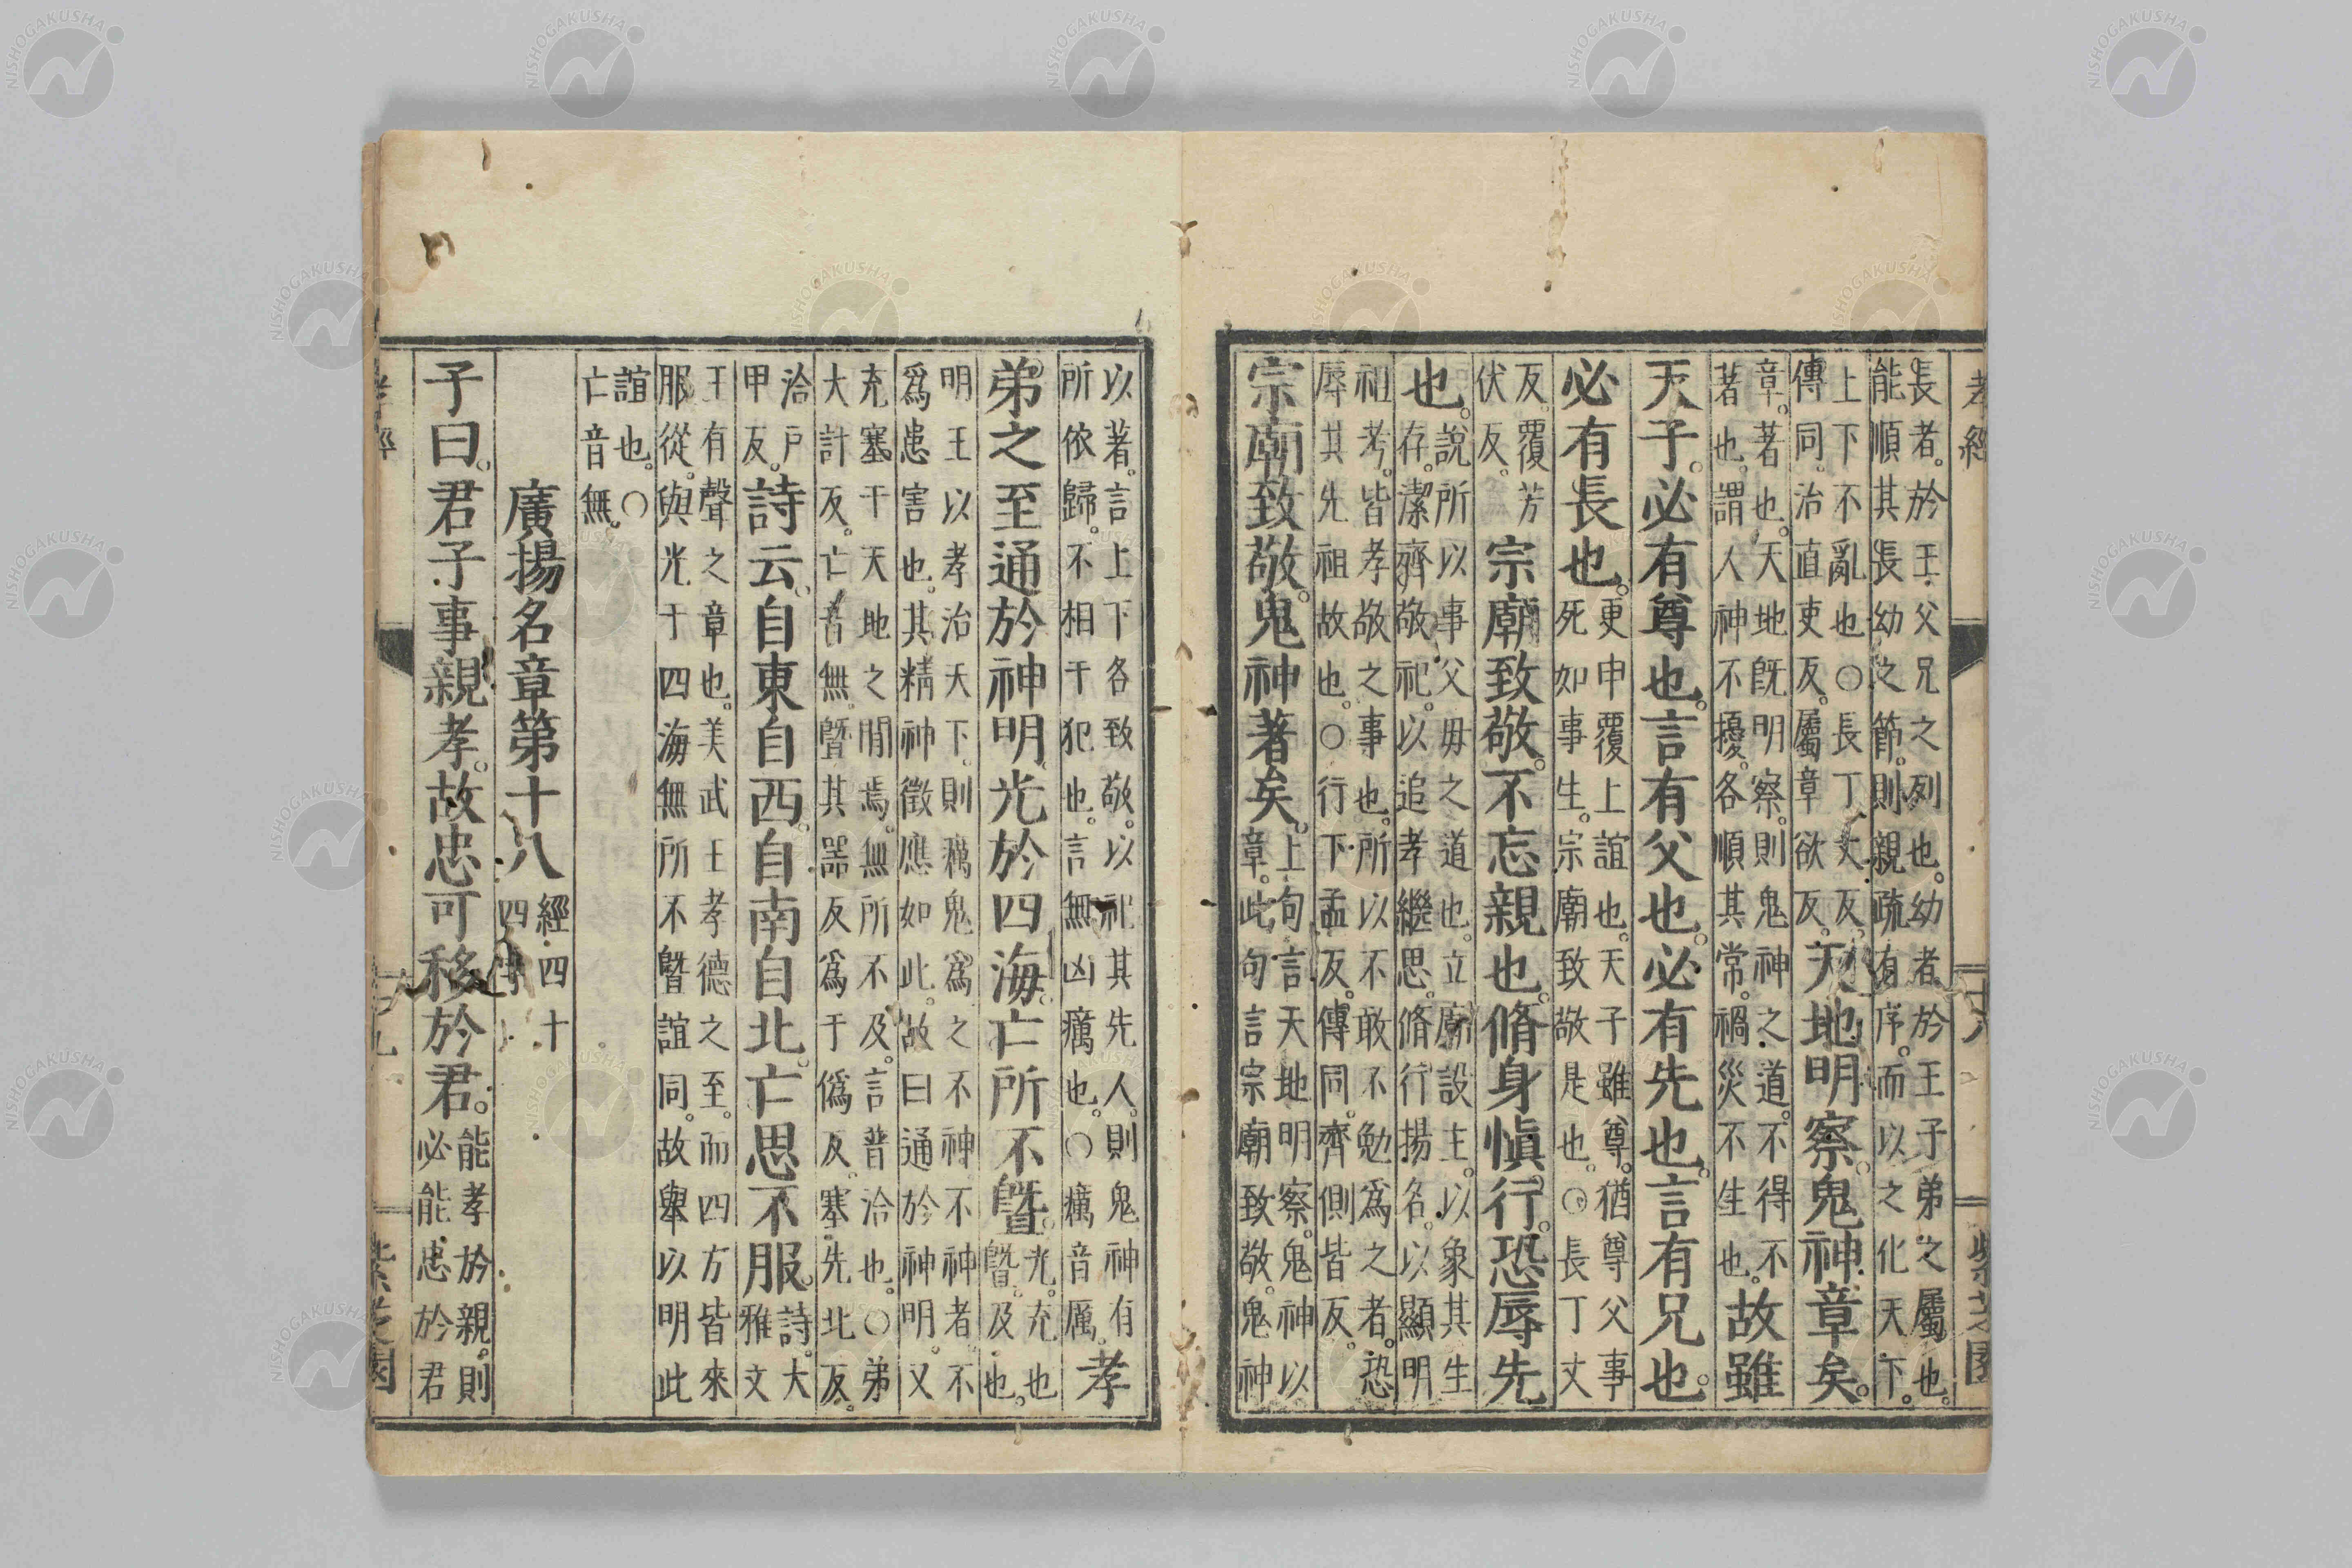 孝經
十八
紫芝園
長者。於王父兄之列也。幼者於王子弟之屬也。
能順其長幼之節。則親疏有序。而以之化天下。
上下不亂也○長丁丈反。
傳同。治直吏反。屬章欲反。
天地明察。鬼神章矣。
章。著也。天地旣明察。則鬼神之道。不得不
著也。謂人神不擾。各順其常。禍災不生也。
故雖
天子。必有尊也。言有父也。必有先也。言有兄也。
必有長也。
更申覆上誼也。天子雖尊。猶尊父事
死如事生。宗廟致敬是也。○長丁丈
反。覆芳
伏反。
宗廟致敬。不忘親也。脩身愼行。恐辱先
也。
說所以事父母之道也。立廟設主。以象其生
存。潔齊敬祀。以追孝繼思。脩行揚名。以顯明
祖考。皆孝敬之事也。所以不敢不勉爲之者。恐
辱其先祖故也。○行下孟反。傳同。齊側皆反。
宗廟致敬。鬼神著矣。
上句言天地明察。鬼神以
章。此句言宗廟致敬。鬼神
以著。言上下各致敬。以祀其先人。則鬼神有
所依歸。不相干犯也。言無凶癘也。○癘音厲。
孝
弟之至。通於神明。光於四海。亡所不曁。
光。充也
曁。及也。
明王以孝治天下。則癘鬼爲之不神。不神者。不
爲患害也。其精神徵應如此。故曰通於神明。又
充塞于天地之閒焉。無所不及。言普洽也。○弟
大計反。亡音無。曁其器反爲于僞反。塞先北反。
洽戶
甲反。
詩云。自東自西。自南自北。亡思不服。
詩。大
雅文
王有聲之章也。美武王孝德之至。而四方皆來
服從。與光于四海無所不曁誼同。故擧以明此
誼也。○
亡音無。
廣揚名章第十八
經四十
四
子曰。君子事親孝。故忠可移於君。
能孝於親。則
必能忠於君
孝經
十九
紫芝園